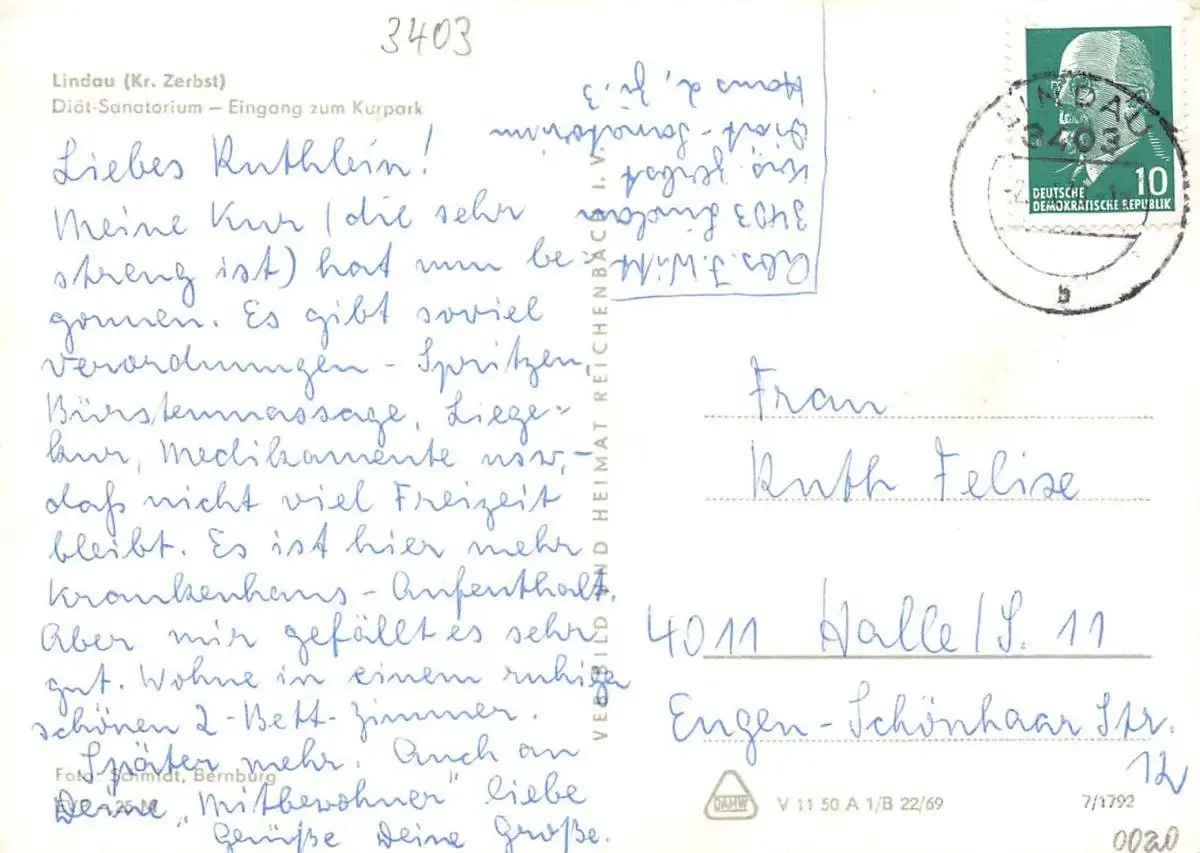 3403
Lindau (Kr. Zerbst)
Diät-Sanatorium – Eingang zum Kurpark
Liebes Ruthlein!
Meine Kur (die sehr
streng ist) hat nun be-
gonnen. Es gibt soviel
Verordnungen - Spritzen,
Bürstenmassage, Liege-
kur, Medikamente usw, -
daß nicht viel Freizeit
bleibt. Es ist hier mehr
Krankenhaus-Aufenthalt.
Aber mir gefällt es sehr
gut. Wohne in einem ruhigen
schönen 2-Bett-Zimmer.
Später mehr. Auch an
Deine „Mitbewohner" liebe
Grüße Deine Große.
Foto: Schmidt, Bernburg
VEB BILD UND HEIMAT REICHENBACH I. V.
Abs. J. Witt
3403 Lindau
Krs. Zerbst
Diät-Sanatorium
Haus 2, Zi. 3
LINDAU
3403
b
10
DEUTSCHE
DEMOKRATISCHE REPUBLIK
Frau
Ruth Felise
4011 Halle/S. 11
Eugen-Schönhaar Str.
12
DAHW
V 11 50 A 1/B 22/69
7/1792
0020